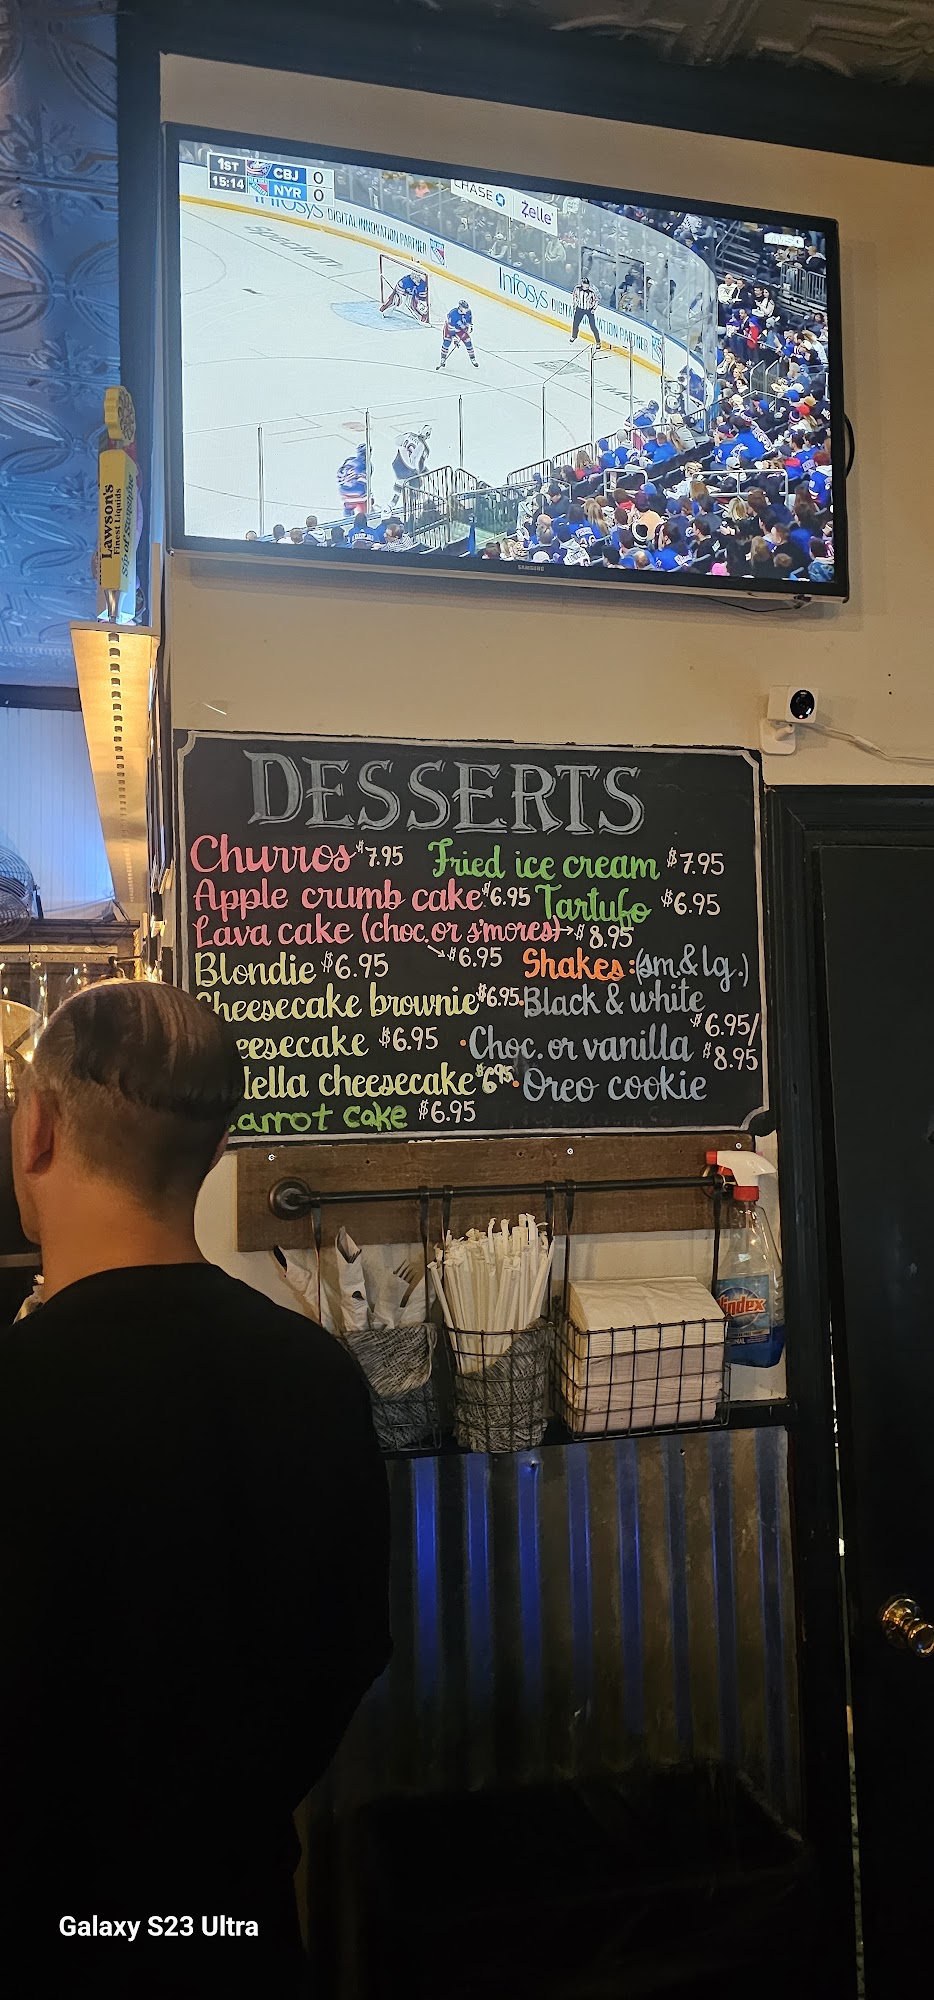 1ST CBJ 0
15:14 NYR 0
CHASE Zelle
Infosys DIGITAL INNOVATION PARTNER
Spectrum
Infosys DIGITAL INNOVATION PARTNER
SAMSUNG
Lawson's
Finest Liquids
Sip of Sunshine
DESSERTS
Churros $7.95 Fried ice cream $7.95
Apple crumb cake $6.95 Tartufo $6.95
Lava cake (choc. or s'mores) → $8.95
→ $6.95
Blondie $6.95 Shakes: (sm. & lg.)
Cheesecake brownie $6.95 • Black & white
eesecake $6.95 • Choc. or vanilla $6.95/
$8.95
tella cheesecake $6.95 • Oreo cookie
arrot cake $6.95
Windex
Galaxy S23 Ultra